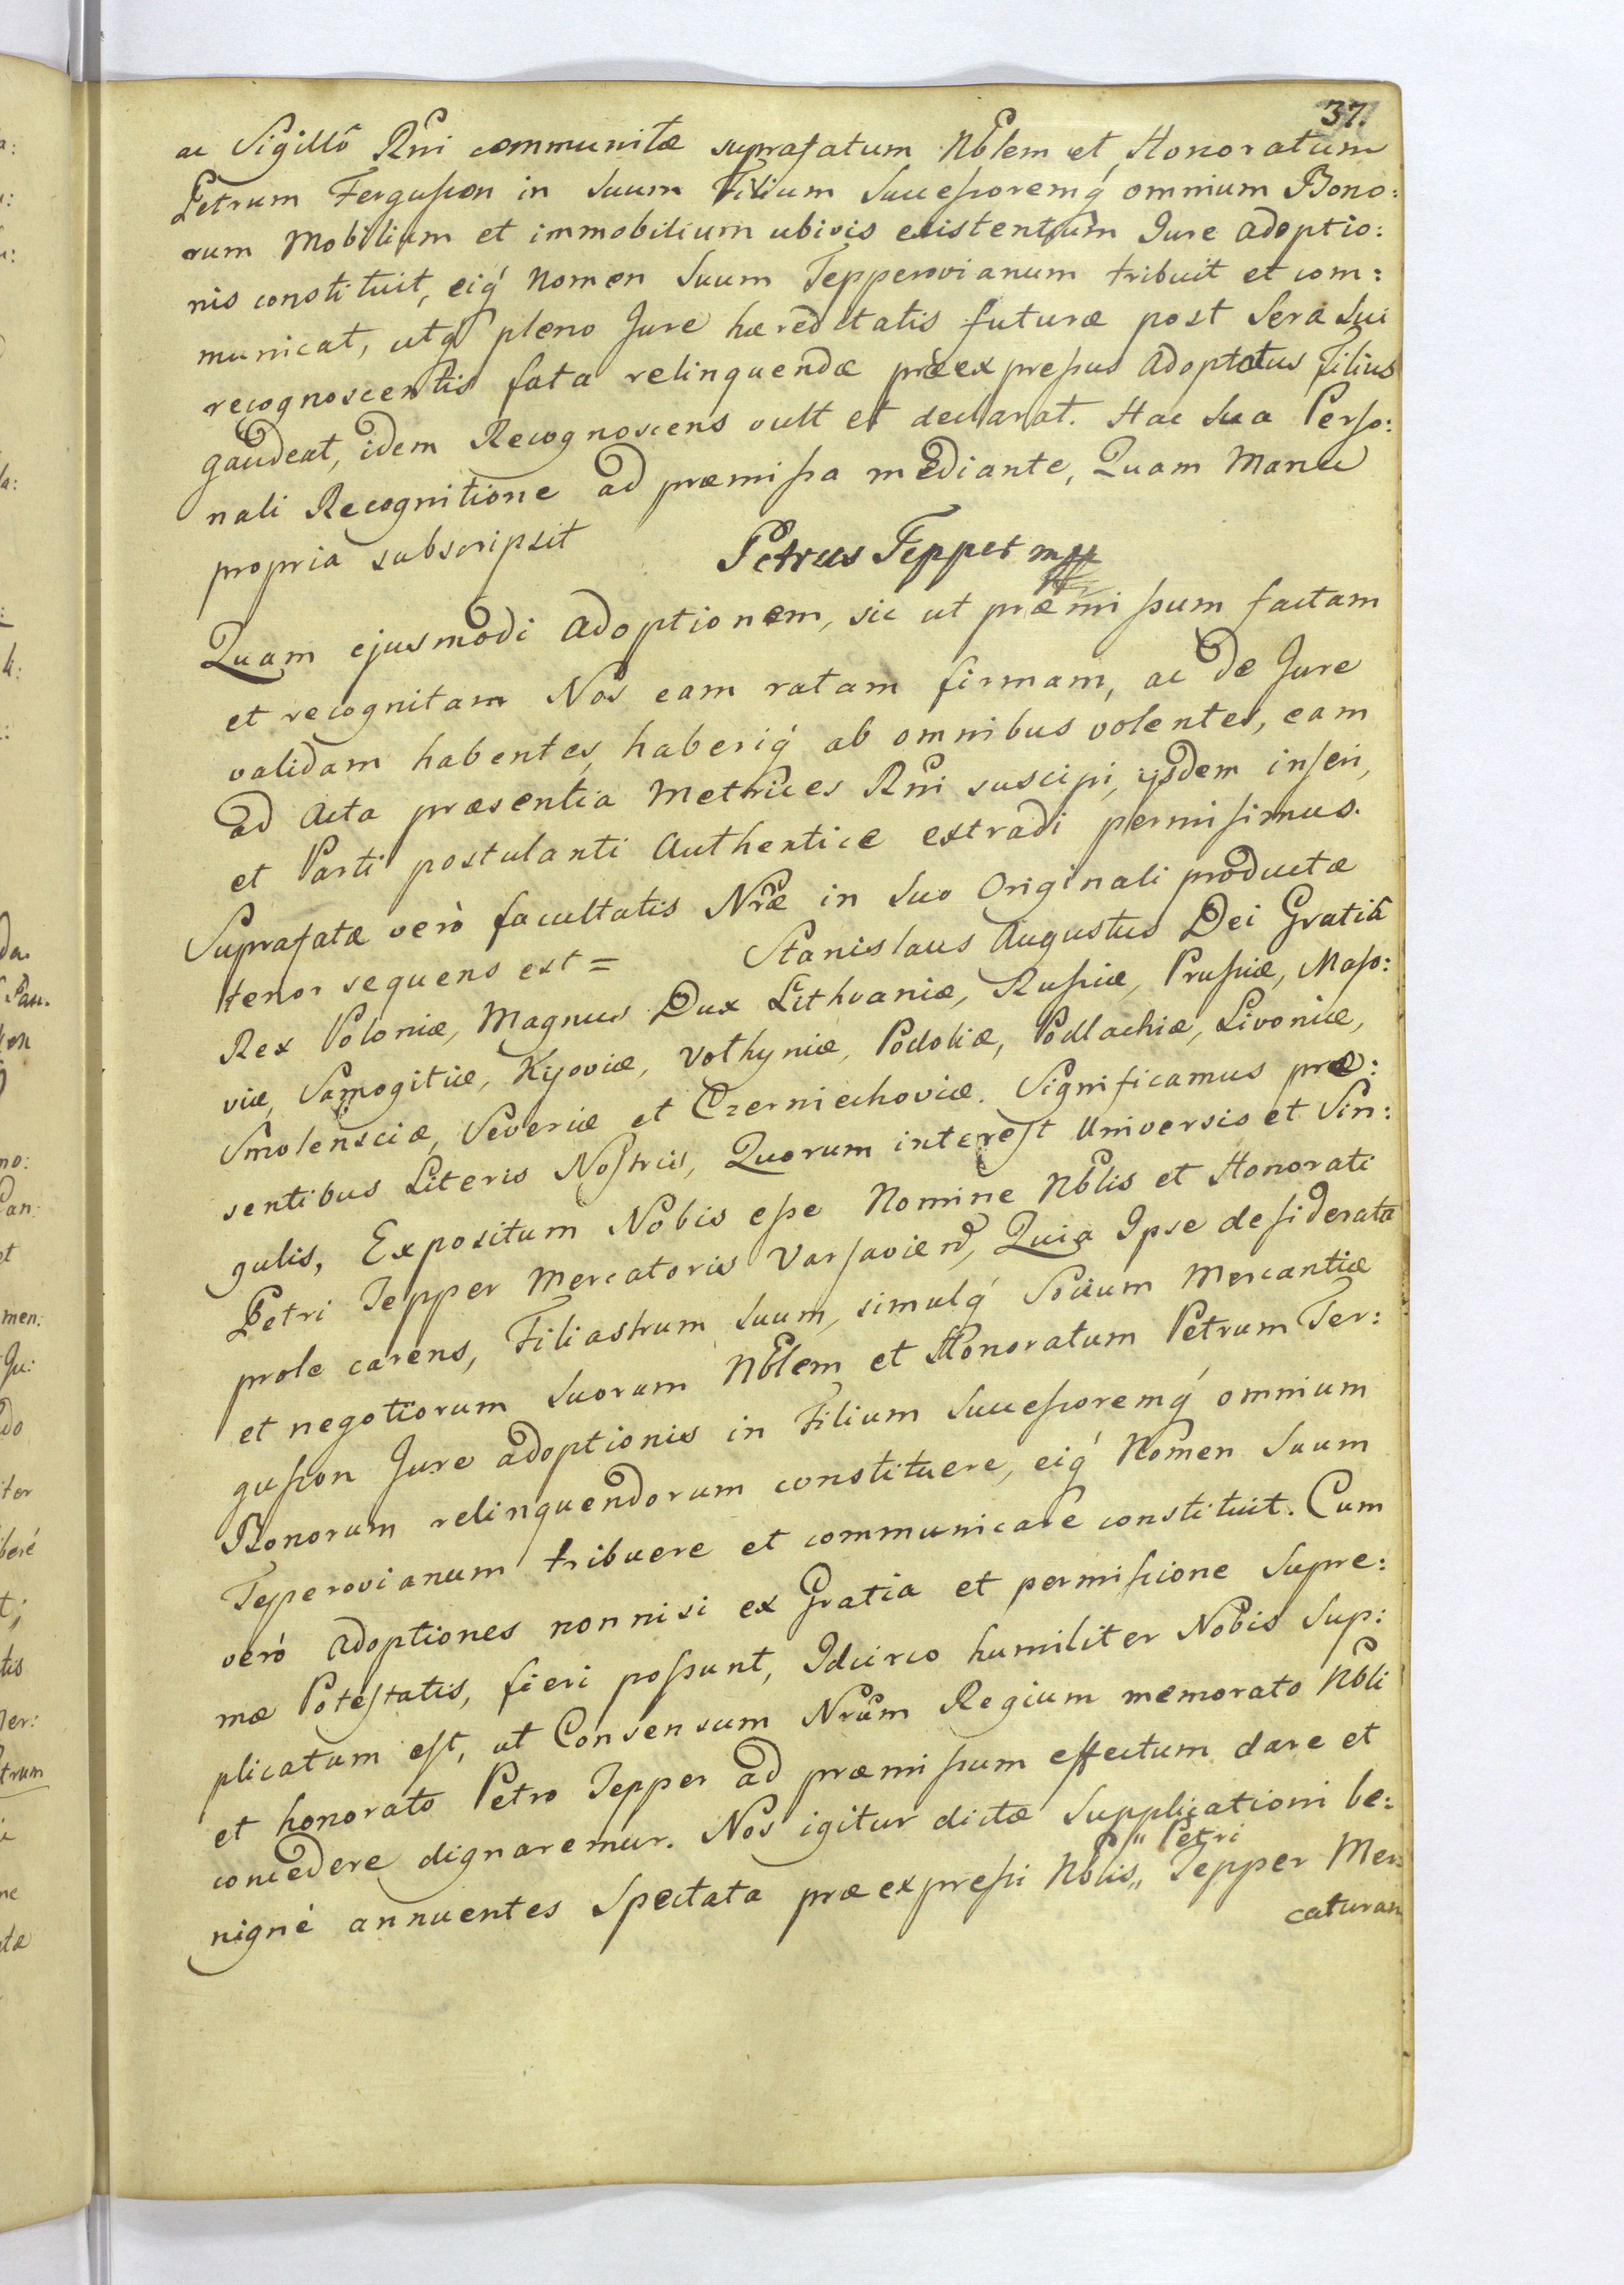 37.
ac Sigillô Rñi communitæ suprafatum Nblem et Honoratum
Petrum Fergusson in suum Filium Successoremq́ omnium Bono:
rum Mobilium et immobilium ubivis existentium Jure adoptio:
nis constituit, eiq́ Nomen suum Tepperovianum tribuit et com:
municat, utq́ pleno Jure hæreditatis futuræ post sera sui
recognoscentis fata relinquendæ præexpressus adoptatus Filius
gaudeat, idem Recognoscens vult et declarat. Hac sua Perso:
nali Recognitione ad præmissa mediante, Quam Manu
propria subscripsit
Petrus Tepper mp
Quam ejusmodi adoptionem, sic ut præmissum factam
et recognitam Nos eam ratam firmam, ac de Jure
validam habentes, haberiq́ ab omnibus volentes, eam
ad Acta præsentia Metrices Rñi suscipi, ijsdem inseri,
et Parti postulanti Authentice extradi permisimus.
Suprafatæ verò facultatis Nræ in suo Originali productæ
tenor sequens est = Stanislaus Augustus Dei Gratiâ
Rex Poloniæ, Magnus Dux Lithvaniæ, Russiæ, Prussiæ, Maso:
viæ, Samogitiæ, Kyoviæ, Volhyniæ, Podoliæ, Podlachiæ, Livoniæ,
Smolensciæ, Severiæ et Czerniechoviæ. Significamus præ:
sentibus Literis Nostris, Quorum interest Universis et Sin:
gulis, Expositum Nobis esse Nomine Nblis et Honorati
Petri Tepper Mercatoris Varsavien, Quia Ipse desiderata
prole carens, Filiastrum suum, simulq́ Socium Mercantiæ
et negotiorum suorum Nblem et Honoratum Petrum Fer:
gusson Jure adoptionis in Filium Successoremq́ omnium
Bonorum relinquendorum constituere, eiq́ Nomen suum
Teperovianum tribuere et communicare constituit. Cum
verò adoptiones non nisi ex Gratia et permissione Supre:
mæ Potestatis, fieri possunt, Idcirco humiliter Nobis sup:
plicatum est, ut Consensum Nrum Regium memorato Nbli
et honorato Petro Tepper ad præmissum effectum dare et
concedere dignaremur. Nos igitur dictæ supplicationi be:
nignè annuentes spectata præexpressi Nblis „ Petri „ Tepper Mer:
caturam